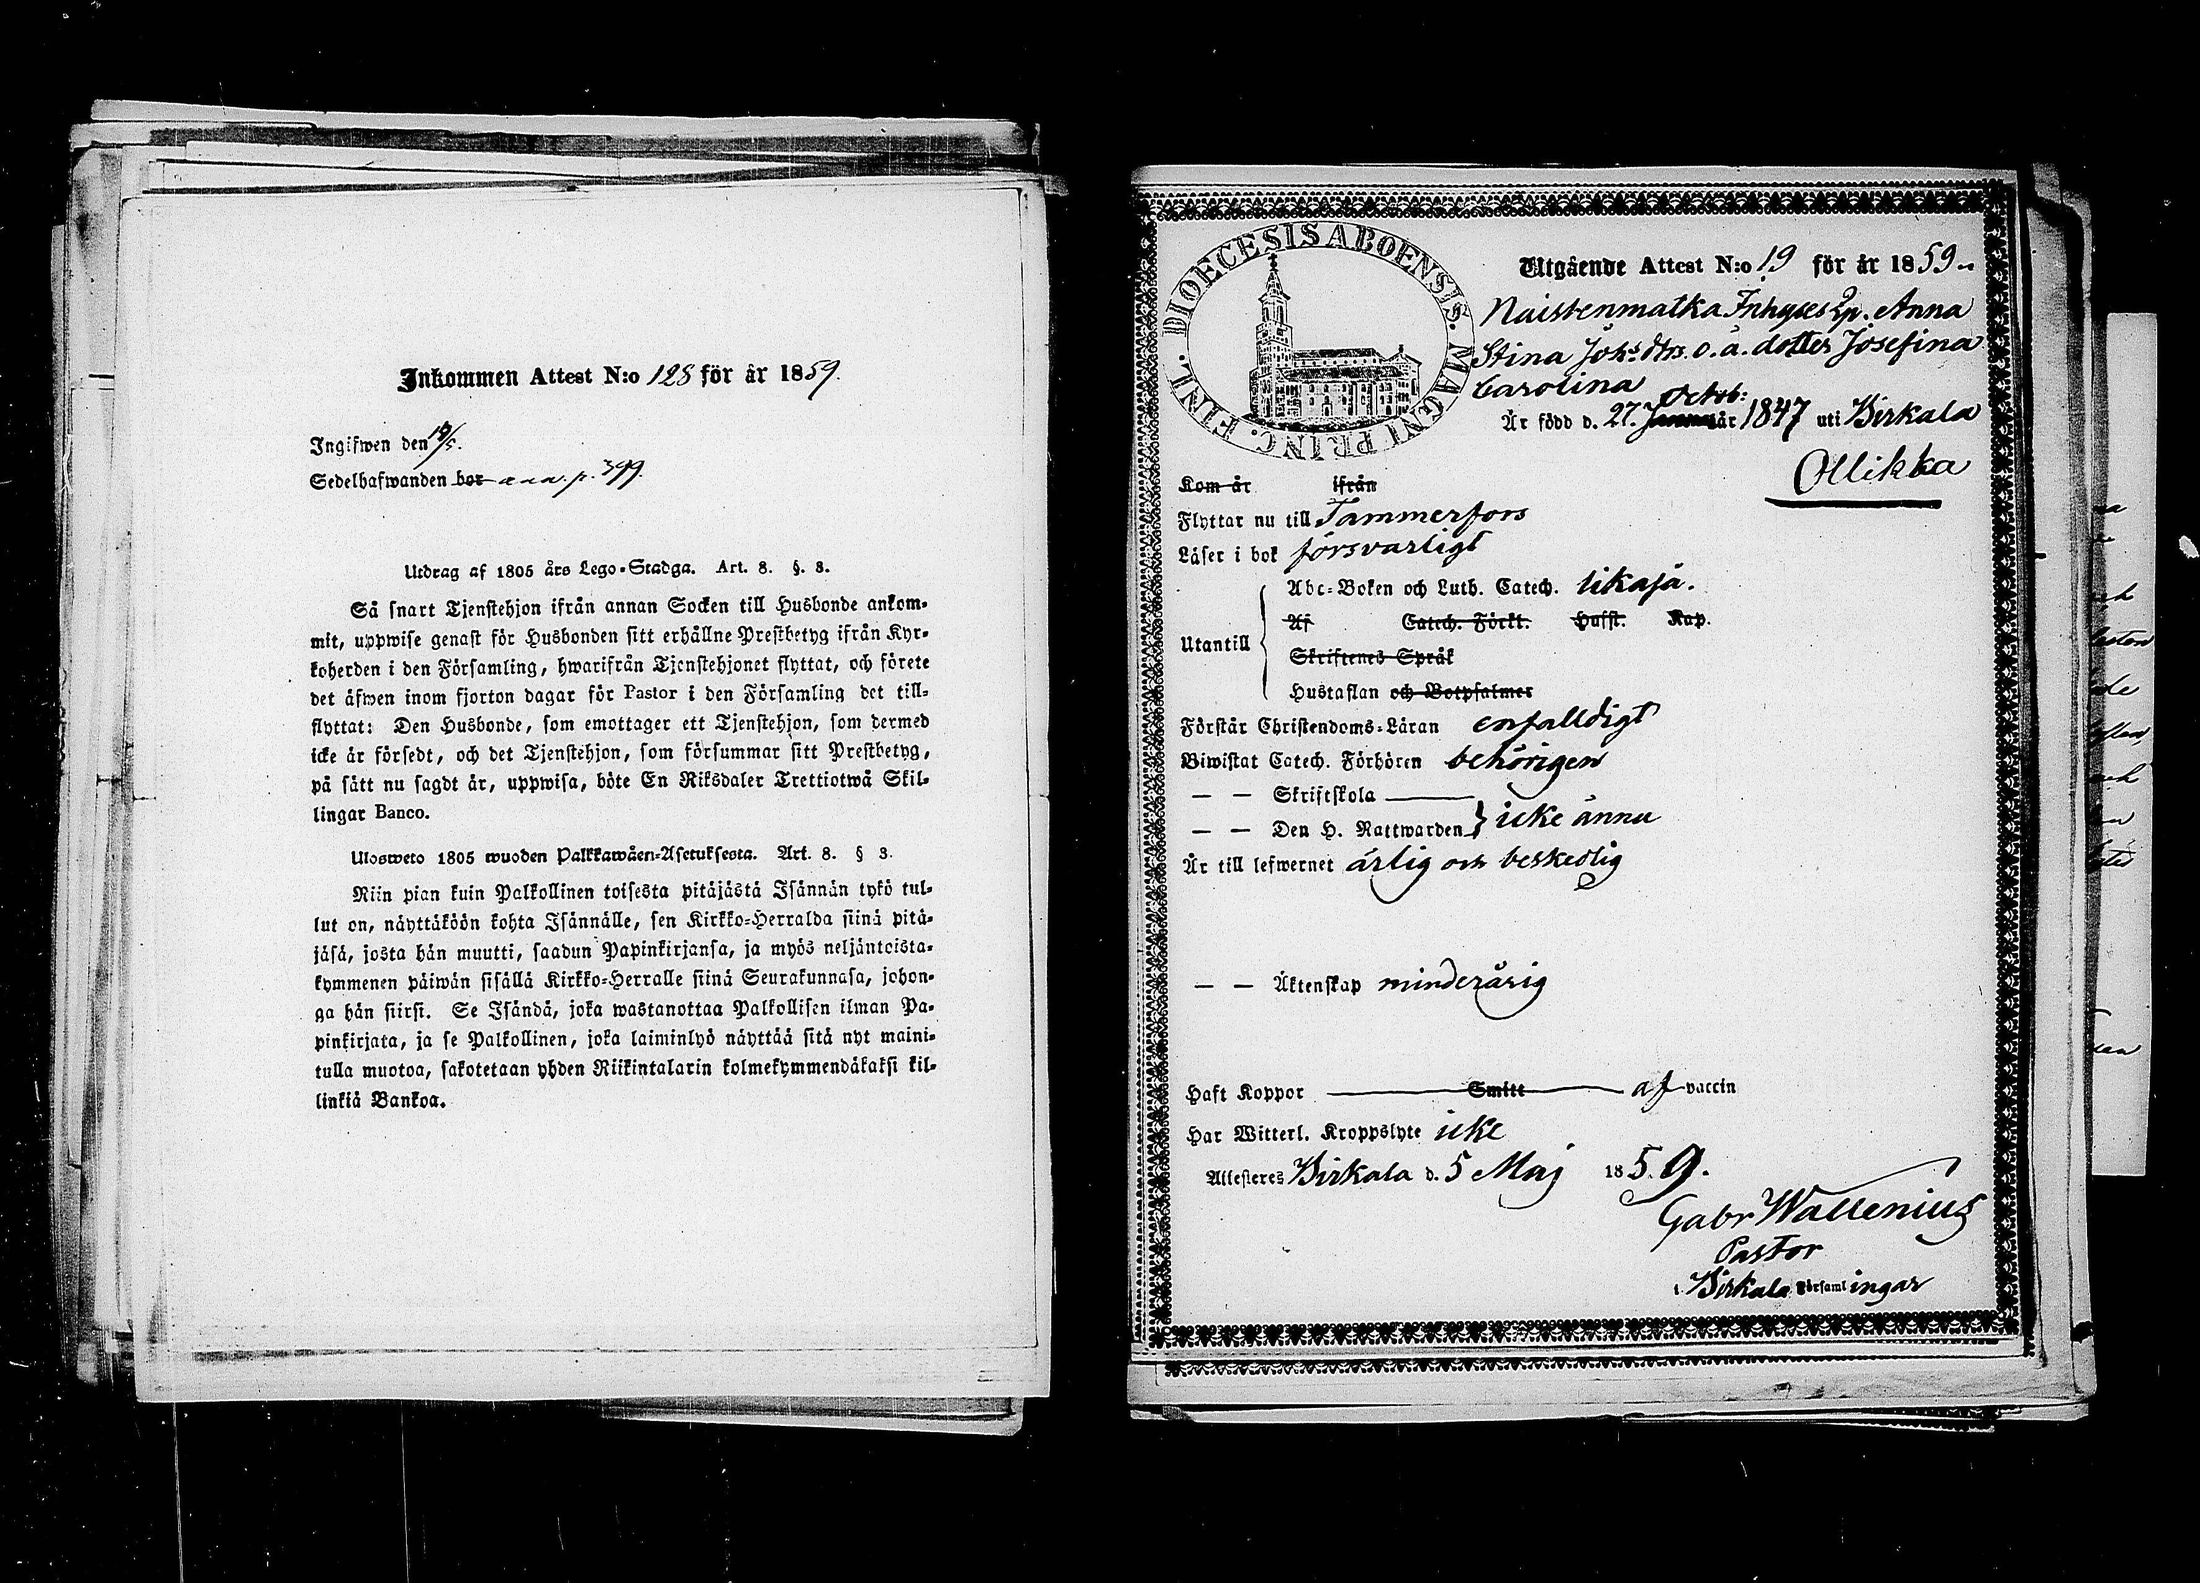 Inkommen Attest N:o 128 för år 1859.
Ingifwen den 19/5.
Sedelhafwanden bor p. 399.
Utdrag af 1805 års Lego-Stadga. Art. 8. §. 3.
Så snart Tjenstehjon ifrån annan Socken till Husbonde ankom-
mit, uppwise genast för Husbonden sitt erhållne Prestbetyg ifrån Kyr-
koherden i den Församling, hwarifrån Tjenstehjonet flyttat, och förete
det äfwen inom fjorton dagar för Pastor i den Församling det till-
flyttat: Den Husbonde, som emottager ett Tjenstehjon, som dermed
icke är försedt, och det Tjenstehjon, som försummar sitt Prestbetyg,
på sätt nu sagdt är, uppwisa, böte En Riksdaler Trettiotwå Skil-
lingar Banco.
Ulosweto 1805 wuoden Palkkawäen-Asetuksesta. Art. 8. § 3.
Niin pian kuin Palkollinen toisesta pitäjästä Isännän tykö tul-
lut on, näyttäköön kohta Isännälle, sen Kirkko-Herralda siinä pitä-
jäsä, josta hän muutti, saadun Papinkirjansa, ja myös neljäntoista-
kymmenen päiwän sisällä Kirkko-Herralle siinä Seurakunnasa, johon-
ga hän siirsi. Se Isändä, joka wastanottaa Palkollisen ilman Pa-
pinkirjata, ja se Palkollinen, joka laiminlyö näyttää sitä nyt maini-
tulla muotoa, sakotetaan yhden Riikintalarin kolmekymmendäkaksi kil-
linkiä Bankoa.
DIOECESIS ABOENSIS. MAGNI PRINC. FINL.
Utgående Attest N:o 19 för år 1859
Naistenmatka Inhyses Anna
Stina Johs dtrs o. ä. dotter Josefina
Carolina
Octob:
Är född d. 27. Januar 1847 uti Birkala
Ollikka
Kom år ifrån
Flyttar nu till Tammerfors
Läser i bok försvarligt
Utantill
Abc-Boken och Luth. Catech. likaså.
Af Catech. Förkl. Hufst. Kap.
Skriftenes Språk
Hustaflan och Botpsalmer
Förstår Christendoms-Läran enfalldigt
Biwistat Catech. Förhören behörigen
— — Skriftskola
— — Den H. Nattwarden } icke ännu
Är till lefwernet ärlig och beskedlig
— — Äktenskap minderårig
Haft Koppor Smitt af vaccin
Har Witterl. Kroppslyte icke
Attesteres Birkala d. 5 Maj 1859.
Gabr Wallenius
Pastor
i Birkala Församlingar